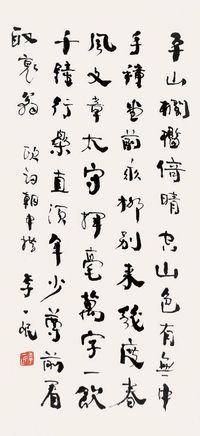 平山欄檻倚晴空山色有無中
手種堂前垂柳別來幾度春
風文章太守揮毫萬字一飲
千鐘行樂直須年少尊前看
取衰翁
歐詞朝中措 李一氓